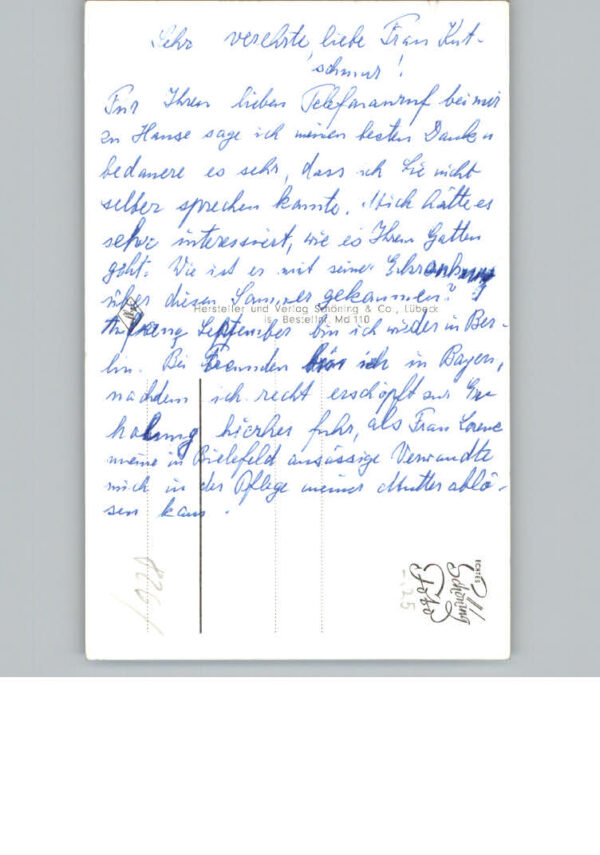 Sehr verehrte, liebe Frau Kut-
schmar!
Für Ihren lieben Telefonanruf bei mir
zu Hause sage ich meinen besten Dank u
bedauere es sehr, dass ich Sie nicht
selber sprechen konnte. Mich hätte es
sehr interessiert, wie es Ihrem Gatten
geht. Wie ist es mit seiner Erkrankung
über diesen Sommer gekommen?
Hersteller und Verlag Schöning & Co., Lübeck
Bestellnr. Md 110
Anfang September bin ich wieder in Ber-
lin. Bei Freunden bin ich in Bayern,
nachdem ich recht erschöpft zur Er-
holung hierher fuhr, als Frau Lorenz
meine in Bielefeld ansässige Verwandte
mich in der Pflege meiner Mutter ablö-
sen kam.
ECHTES
Schöning
Foto
-,25